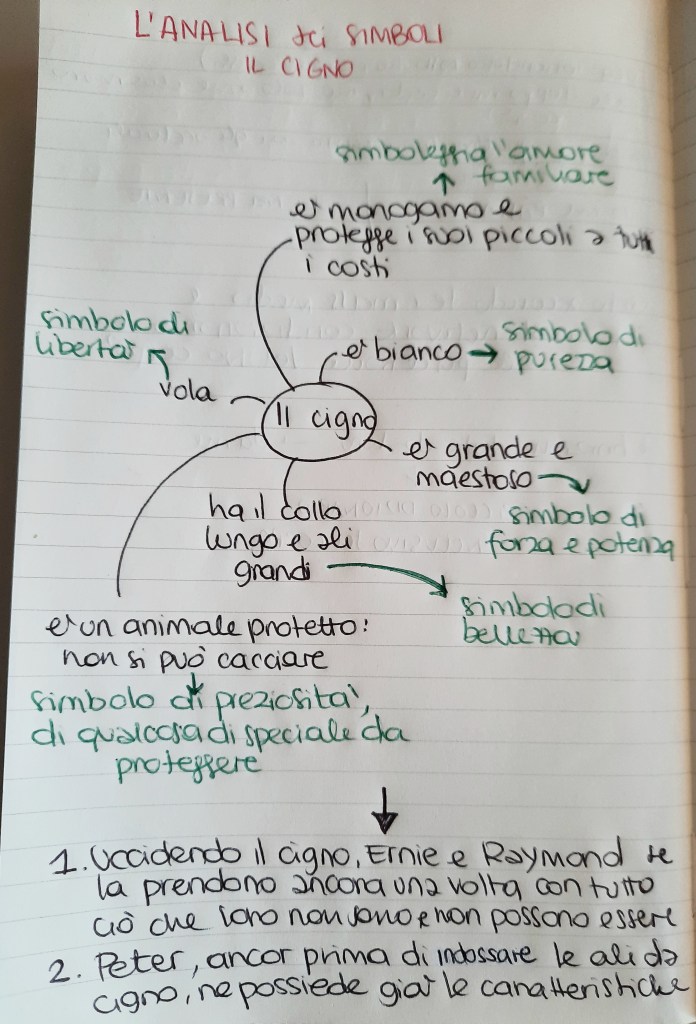 L'ANALISI dei SIMBOLI
IL CIGNO
simboleggia l'amore
familiare
è monogamo e
protegge i suoi piccoli a tutti
i costi
simbolo di
libertà
vola
è bianco → simbolo di
purezza
Il cigno
è grande e
maestoso
simbolo di
forza e potenza
ha il collo
lungo e ali
grandi
simbolo di
bellezza
è un animale protetto:
non si può cacciare
simbolo di preziosità,
di qualcosa di speciale da
proteggere
1. Uccidendo il cigno, Ernie e Raymond se
la prendono ancora una volta con tutto
ciò che loro non sono e non possono essere
2. Peter, ancor prima di indossare le ali da
cigno, ne possiede già le caratteristiche